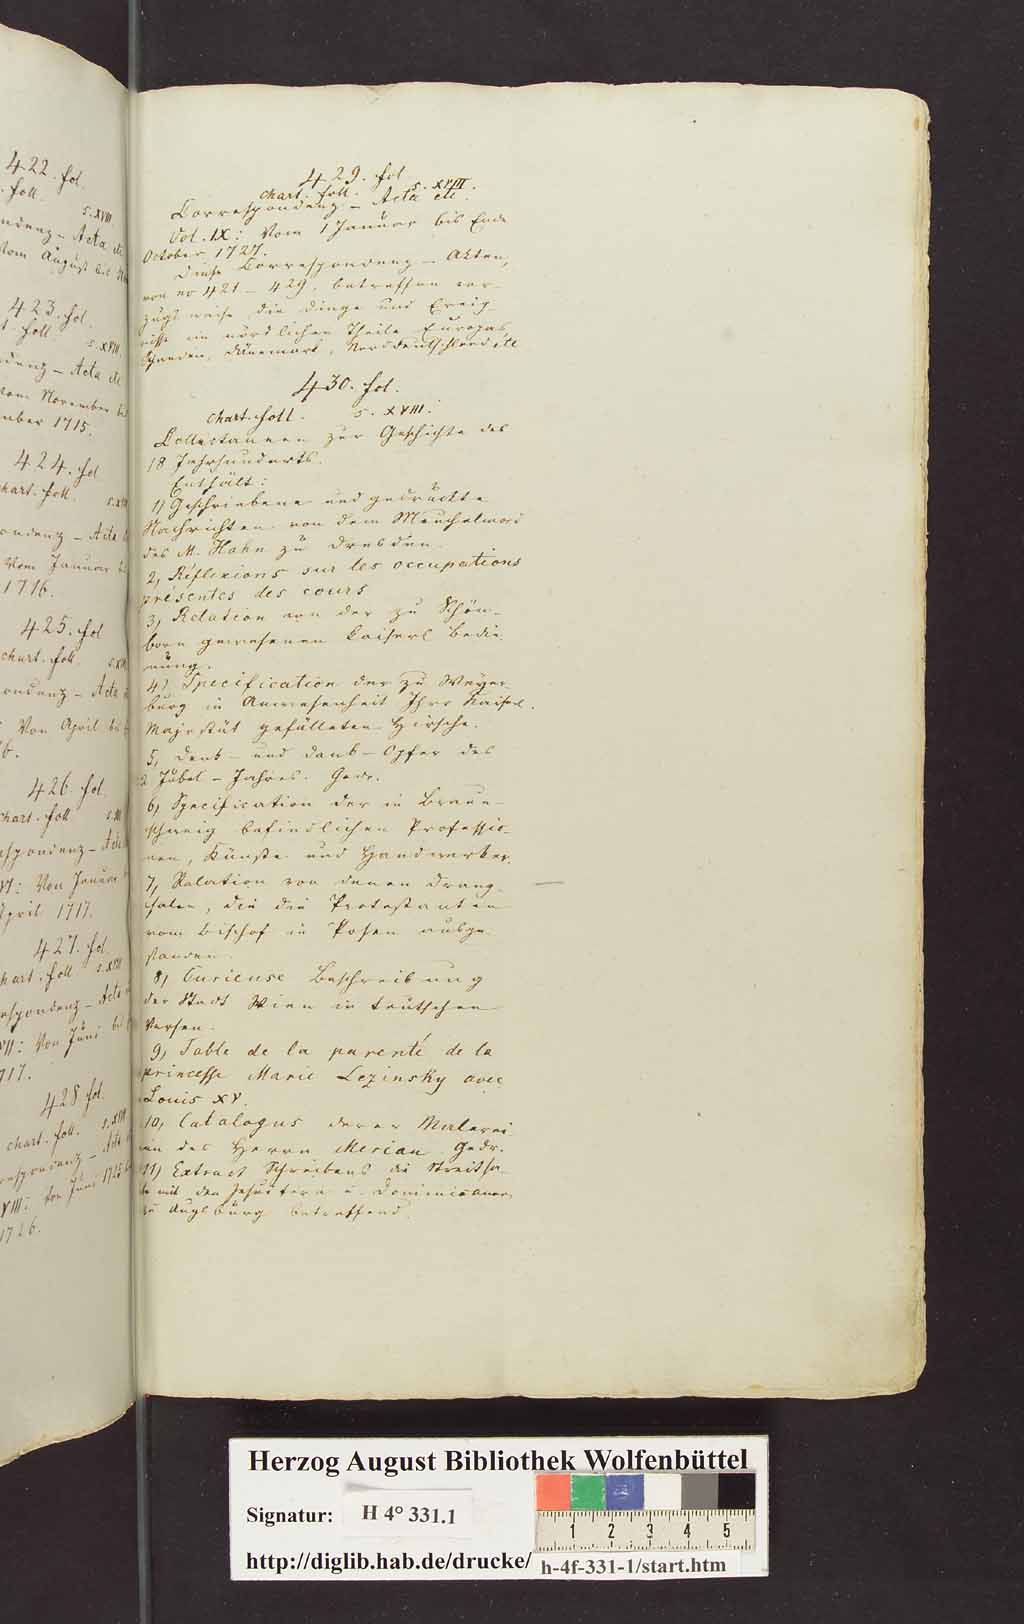 422. fol.
foll.
s. XVIII.
ndenz - Acta etc
Vom August bis
423. fol.
foll.
s. XVIII.
denz - Acta etc
Vom November bis
mber 1715.
424. fol
chart. foll.
s. XVIII
ondenz - Acta
Vom Januar
1716.
425. fol
chart. foll.
s. XVIII
ondenz - Acta
Von April bis
6.
426. fol.
chart. foll
s. XVIII
espondenz - Acta
VI: Von Januar
April 1717.
427. fol.
hart. foll s. XVIII
espondenz - Acta
VII: Von Juni bis
717.
428 fol.
chart. foll. s. XVIII
respondenz - Acta
VIII: Juni 1725
1726.
429. fol
chart. foll. s. XVIII.
Correspondenz - Acta etc.
Vol. IX: Vom 1 Januar bis Ende
October 1727.
Diese Correspondenz - Akten,
von no 421 - 429, betreffen vor-
zugsweise die Dinge und Ereig-
nisse im nördlichen Theile Europas,
Schweden, Dänemark, Norddeutschland etc
430. fol.
chart. foll. s. XVIII.
Collectaneen zur Geschichte des
18 Jahrhunderts.
Enthält:
1) Geschriebene und gedruckte
Nachrichten von dem Meuchelmord
des M. Hahn zu Dresden.
2, Réflexions sur les occupations
présentes des cours
3, Relation von der zu Schön-
born gewesenen Kaiserl Bedie-
nung.
4) Specification der zu Weyer-
burg in Anwesenheit Ihro Kaiserl.
Majestät gefälleten Hirsche.
5, Denk- und Dank-Opfer des
2 Jubel-Jahres. Gedr.
6, Specification der in Braun-
schweig befindlichen Professio-
nen, Künste und Handwerker.
7, Relation von denen Drang-
salen, die die Protestanten
vom Bischof in Posen ausge-
standen.
8, Curieuse Beschreibung
der Stadt Wien in teutschen
Versen.
9, Table de la parenté de la
princesse Marie Lezinsky avec
Louis XV.
10, Catalogus derer Malerei
en des Herrn Merian Gedr.
11) Extract Schreibens die Streitsa-
che mit den Jesuitern u. Dominicanern
zu Augsburg betreffend.
Herzog August Bibliothek Wolfenbüttel
Signatur: H 4° 331.1
1 2 3 4 5
http://diglib.hab.de/drucke/ h-4f-331-1/start.htm